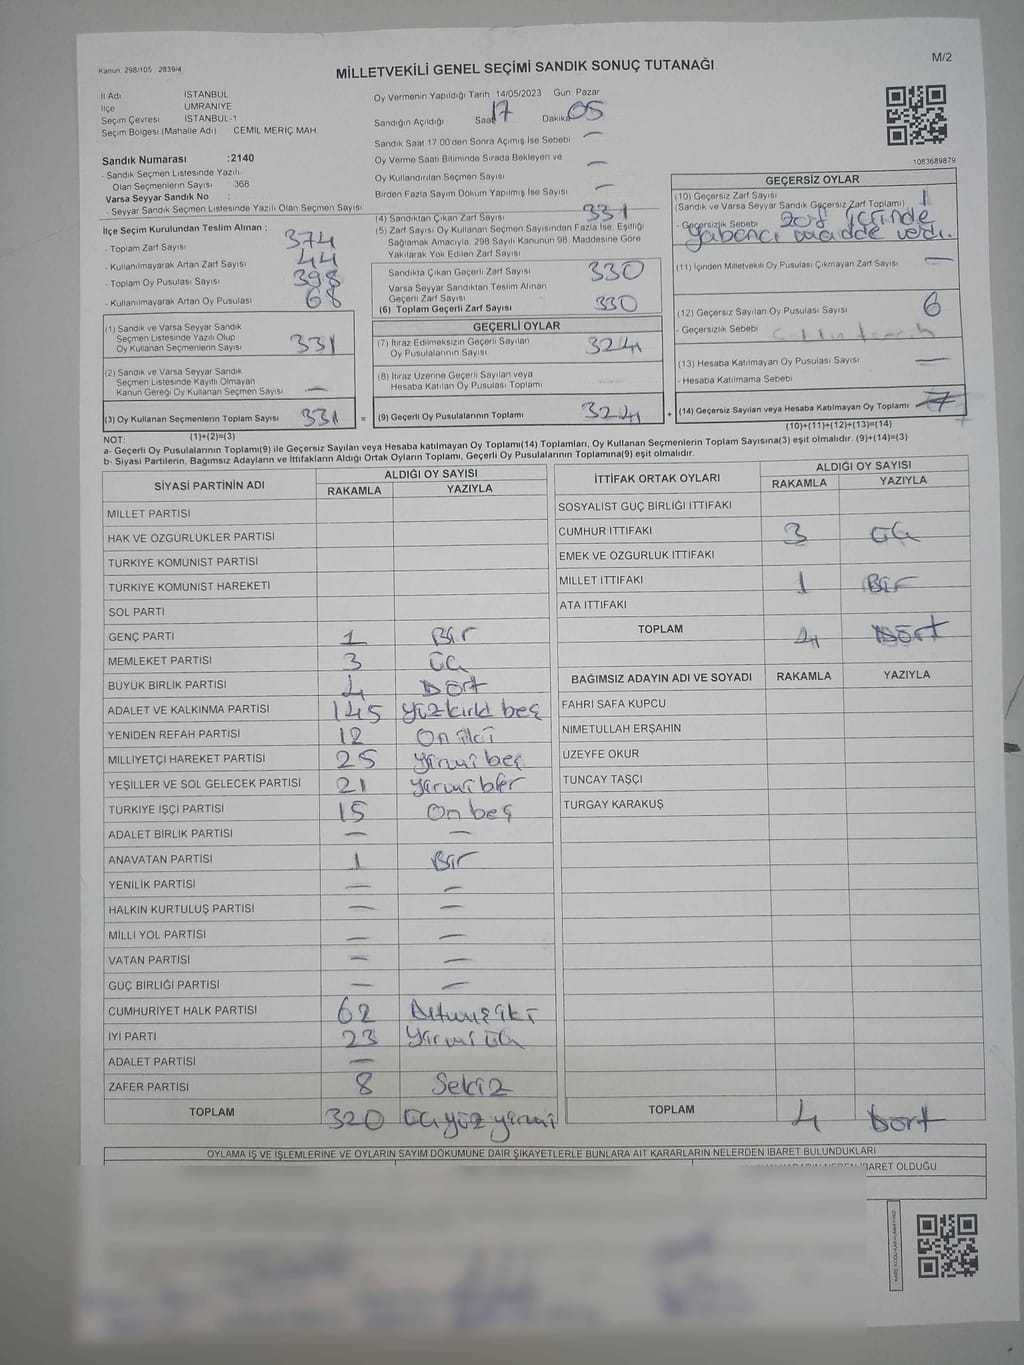 Kanun: 298/105 2839/4
M/2
MİLLETVEKİLİ GENEL SEÇİMİ SANDIK SONUÇ TUTANAĞI
İl Adı İSTANBUL
İlçe ÜMRANİYE
Seçim Çevresi İSTANBUL-1
Seçim Bölgesi (Mahalle Adı) CEMİL MERİÇ MAH
Sandık Numarası :2140
- Sandık Seçmen Listesinde Yazılı
Olan Seçmenlerin Sayısı 368
Varsa Seyyar Sandık No :
- Seyyar Sandık Seçmen Listesinde Yazılı Olan Seçmen Sayısı
Oy Vermenin Yapıldığı Tarih 14/05/2023 Gün Pazar
Sandığın Açıldığı Saat 17 Dakika 05
Sandık Saat 17.00'den Sonra Açımış İse Sebebi —
Oy Verme Saati Bitiminde Sırada Bekleyen ve
Oy Kullandırılan Seçmen Sayısı —
Birden Fazla Sayım Döküm Yapılmış İse Sayısı —
1083689879
İlçe Seçim Kurulundan Teslim Alınan :
- Toplam Zarf Sayısı 374
- Kullanılmayarak Artan Zarf Sayısı 44
- Toplam Oy Pusulası Sayısı 398
- Kullanılmayarak Artan Oy Pusulası 68
(1) Sandık ve Varsa Seyyar Sandık
Seçmen Listesinde Yazılı Olup
Oy Kullanan Seçmenlerin Sayısı 331
(2) Sandık ve Varsa Seyyar Sandık
Seçmen Listesinde Kayıtlı Olmayan
Kanun Gereği Oy Kullanan Seçmen Sayısı —
(3) Oy Kullanan Seçmenlerin Toplam Sayısı 331 =
(1)+(2)=(3)
(4) Sandıktan Çıkan Zarf Sayısı 331
(5) Zarf Sayısı Oy Kullanan Seçmen Sayısından Fazla İse, Eşitliği
Sağlamak Amacıyla, 298 Sayılı Kanunun 98. Maddesine Göre
Yakılarak Yok Edilen Zarf Sayısı
Sandıkta Çıkan Geçerli Zarf Sayısı 330
Varsa Seyyar Sandıktan Teslim Alınan
Geçerli Zarf Sayısı
(6) Toplam Geçerli Zarf Sayısı 330
GEÇERLİ OYLAR
(7) İtiraz Edilmeksizin Geçerli Sayılan
Oy Pusulalarının Sayısı 324
(8) İtiraz Üzerine Geçerli Sayılan veya
Hesaba Katılan Oy Pusulası Toplamı
(9) Geçerli Oy Pusulalarının Toplamı 324 +
GEÇERSİZ OYLAR
(10) Geçersiz Zarf Sayısı
(Sandık ve Varsa Seyyar Sandık Geçersiz Zarf Toplamı) 1
- Geçersizlik Sebebi Zarf içinde
yabancı madde verdı.
(11) İçinden Milletvekili Oy Pusulası Çıkmayan Zarf Sayısı —
(12) Geçersiz Sayılan Oy Pusulası Sayısı 6
- Geçersizlik Sebebi
(13) Hesaba Katılmayan Oy Pusulası Sayısı —
- Hesaba Katılmama Sebebi
(14) Geçersiz Sayılan veya Hesaba Katılmayan Oy Toplamı 7
(10)+(11)+(12)+(13)=(14)
NOT:
a- Geçerli Oy Pusulalarının Toplamı(9) ile Geçersiz Sayılan veya Hesaba katılmayan Oy Toplamı(14) Toplamları, Oy Kullanan Seçmenlerin Toplam Sayısına(3) eşit olmalıdır. (9)+(14)=(3)
b- Siyasi Partilerin, Bağımsız Adayların ve İttifakların Aldığı Ortak Oyların Toplamı, Geçerli Oy Pusulalarının Toplamına(9) eşit olmalıdır.
SİYASİ PARTİNİN ADI ALDIĞI OY SAYISI
RAKAMLA YAZIYLA
MİLLET PARTİSİ
HAK VE ÖZGÜRLÜKLER PARTİSİ
TÜRKİYE KOMÜNİST PARTİSİ
TÜRKİYE KOMÜNİST HAREKETİ
SOL PARTİ
GENÇ PARTİ 1 Bir
MEMLEKET PARTİSİ 3 üç
BÜYÜK BİRLİK PARTİSİ 4 Dört
ADALET VE KALKINMA PARTİSİ 145 yüzkırk beş
YENİDEN REFAH PARTİSİ 12 On iki
MİLLİYETÇİ HAREKET PARTİSİ 25 yirmi beş
YEŞİLLER VE SOL GELECEK PARTİSİ 21 yirmi bir
TÜRKİYE İŞÇİ PARTİSİ 15 On beş
ADALET BİRLİK PARTİSİ — —
ANAVATAN PARTİSİ 1 Bir
YENİLİK PARTİSİ — —
HALKIN KURTULUŞ PARTİSİ — —
MİLLİ YOL PARTİSİ — —
VATAN PARTİSİ — —
GÜÇ BİRLİĞİ PARTİSİ — —
CUMHURİYET HALK PARTİSİ 62 Altmış iki
İYİ PARTİ 23 Yirmi üç
ADALET PARTİSİ —
ZAFER PARTİSİ 8 Sekiz
TOPLAM 320 üçyüz yirmi
İTTİFAK ORTAK OYLARI ALDIĞI OY SAYISI
RAKAMLA YAZIYLA
SOSYALİST GÜÇ BİRLİĞİ İTTİFAKI
CUMHUR İTTİFAKI 3 üç
EMEK VE ÖZGÜRLÜK İTTİFAKI
MİLLET İTTİFAKI 1 Bir
ATA İTTİFAKI
TOPLAM 4 Dört
BAĞIMSIZ ADAYIN ADI VE SOYADI RAKAMLA YAZIYLA
FAHRİ SAFA KUPCU
NİMETULLAH ERŞAHİN
UZEYFE OKUR
TUNCAY TAŞÇI
TURGAY KARAKUŞ
TOPLAM 4 Dört
OYLAMA İŞ VE İŞLEMLERİNE VE OYLARIN SAYIM DÖKÜMÜNE DAİR ŞİKAYETLERLE BUNLARA AİT KARARLARIN NELERDEN İBARET BULUNDUKLARI
İBARET OLDUĞU